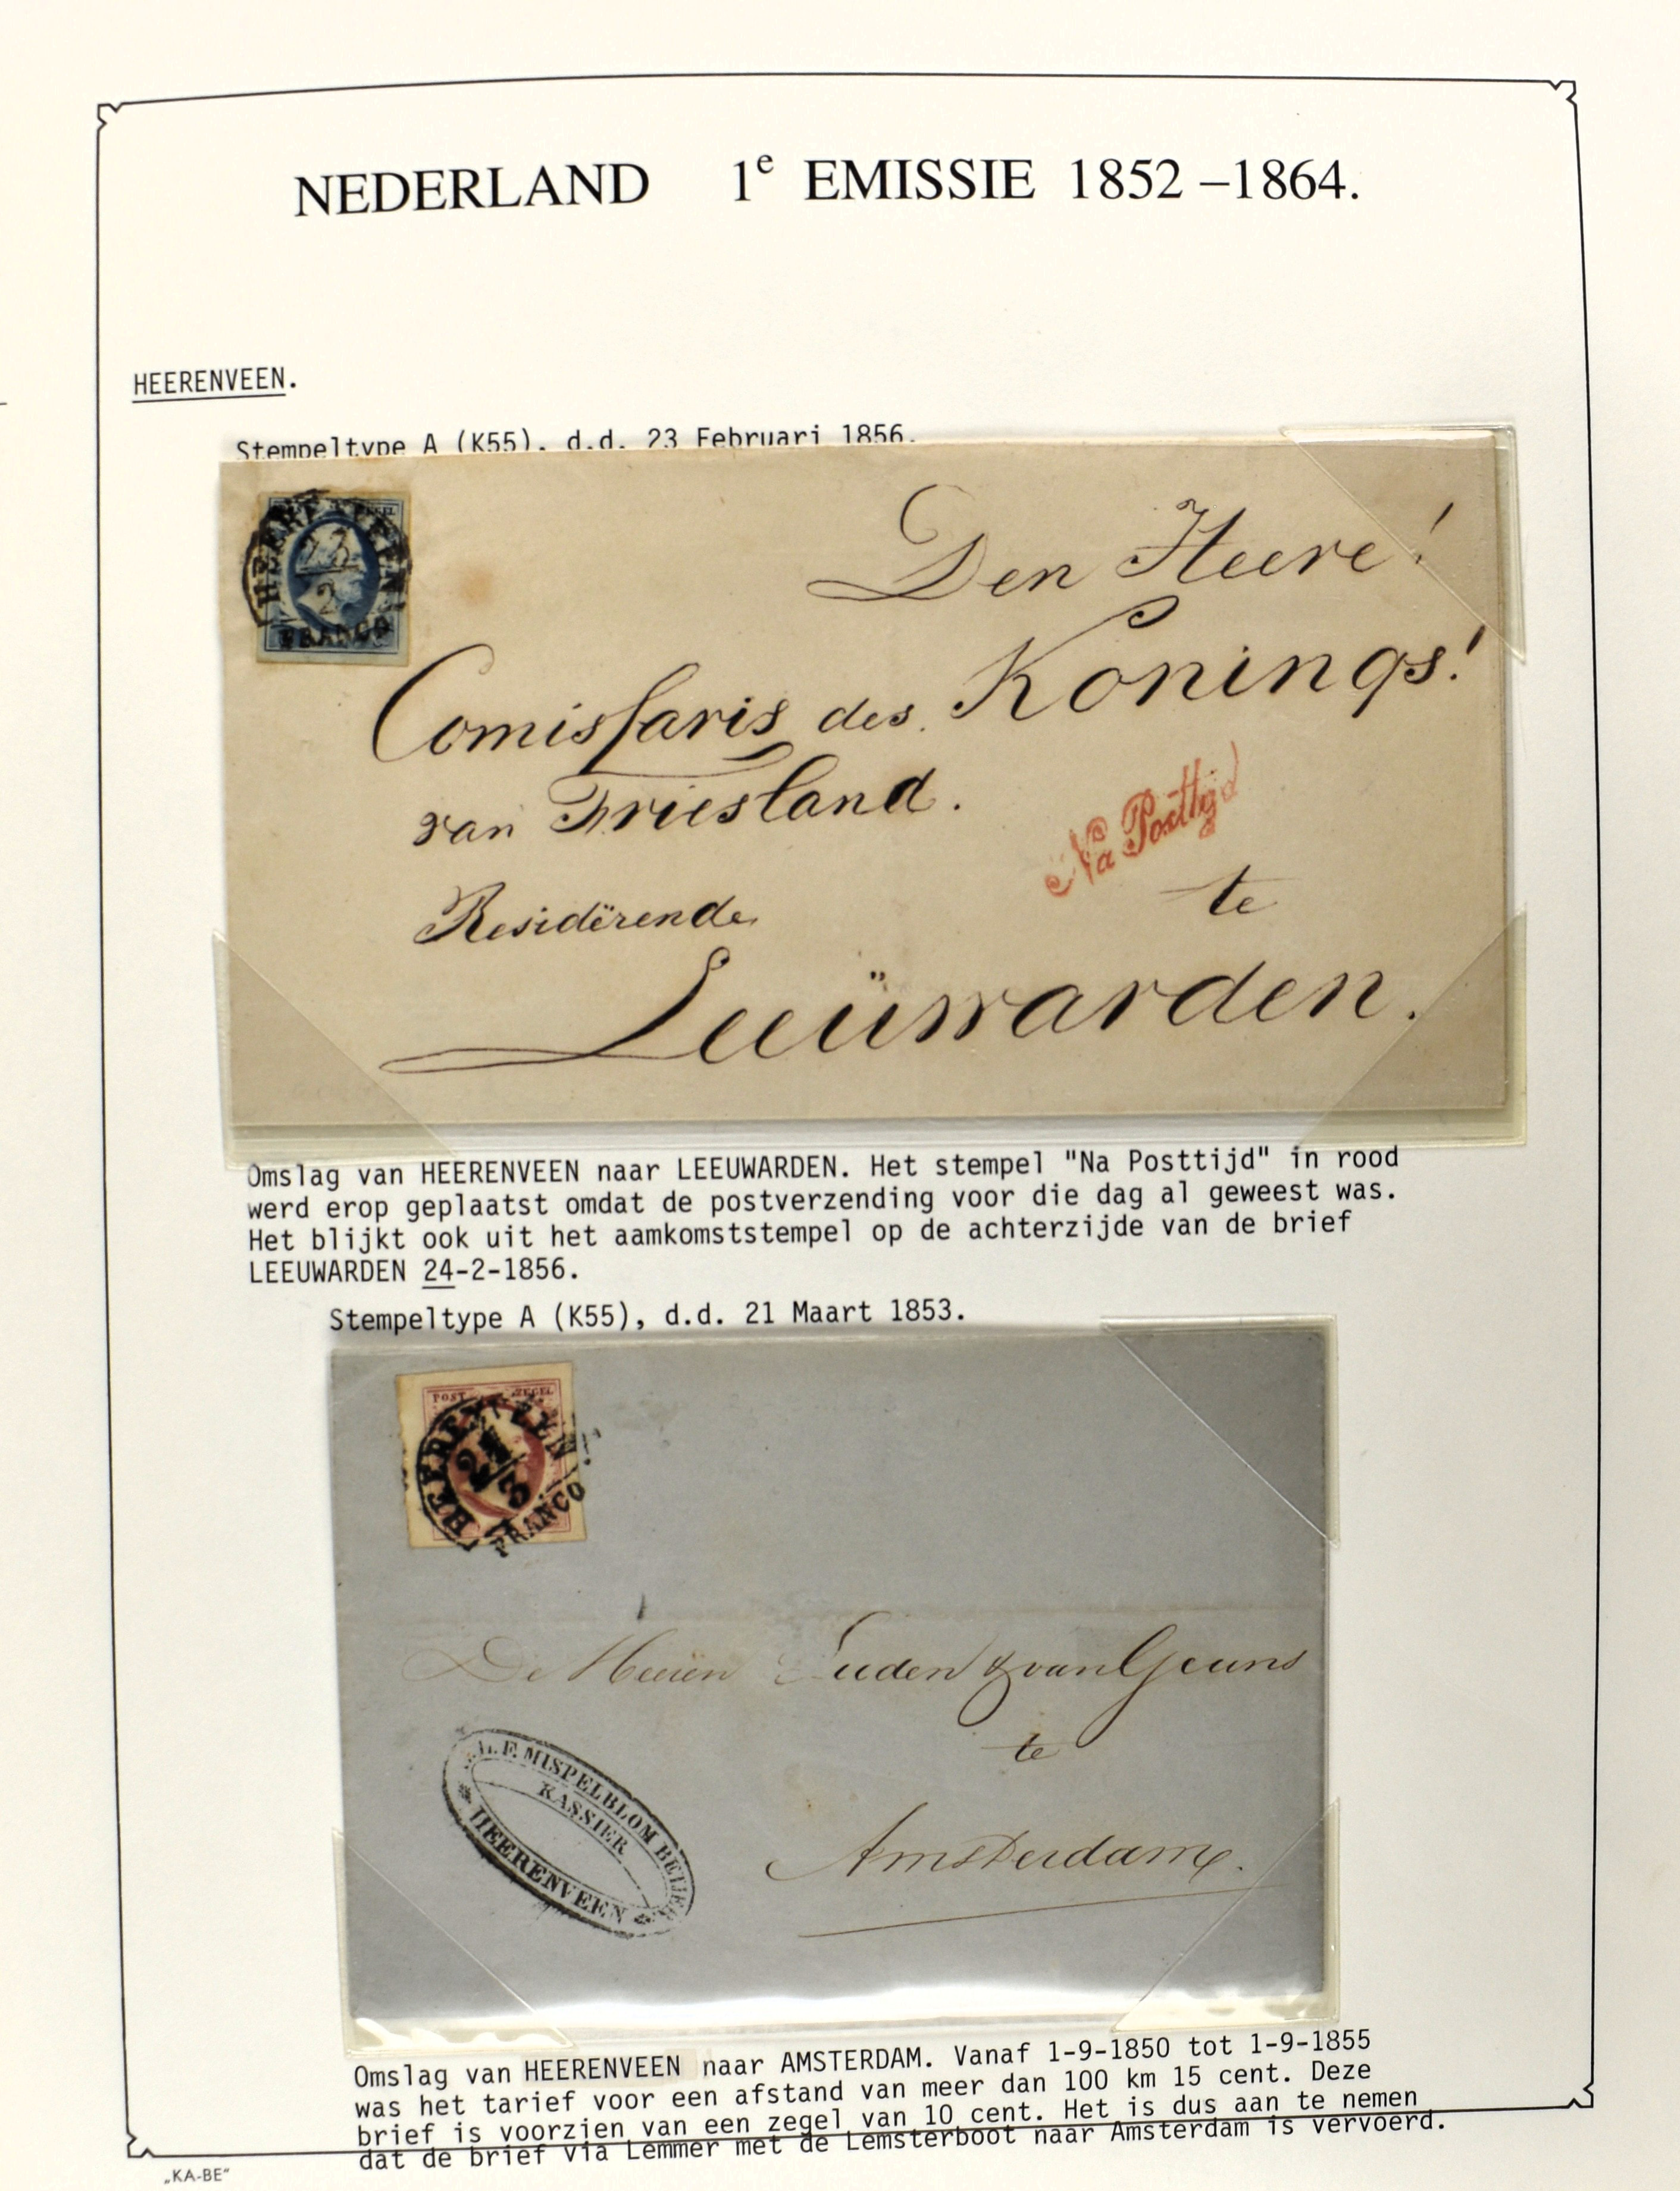 NEDERLAND 1e EMISSIE 1852 –1864.
HEERENVEEN.
Stempeltype A (K55), d.d. 23 Februari 1856.
HEERENVEEN
23
2
FRANCO
Den Heere!
Comissaris des Konings!
van Friesland.
Na Posttijd
te
Residërende
Leeüwarden.
Omslag van HEERENVEEN naar LEEUWARDEN. Het stempel "Na Posttijd" in rood
werd erop geplaatst omdat de postverzending voor die dag al geweest was.
Het blijkt ook uit het aamkomststempel op de achterzijde van de brief
LEEUWARDEN 24-2-1856.
Stempeltype A (K55), d.d. 21 Maart 1853.
POST ZEGEL
HEERENVEEN
21
3
FRANCO
De Heeren Luden & van Geuns
te
Amsterdam.
F. MISPELBLOM BEIJER
KASSIER
HEERENVEEN
Omslag van HEERENVEEN naar AMSTERDAM. Vanaf 1-9-1850 tot 1-9-1855
was het tarief voor een afstand van meer dan 100 km 15 cent. Deze
brief is voorzien van een zegel van 10 cent. Het is dus aan te nemen
dat de brief via Lemmer met de Lemsterboot naar Amsterdam is vervoerd.
„KA-BE"